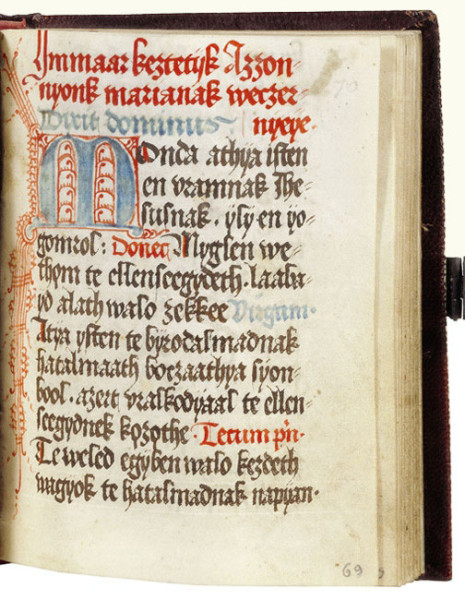 Immaar keztetyk Azzon-
nyonk marianak weczer-
Dixit dominus. nyeye.
Monda athya isten
en vramnak Ihe-
susnak. yly en yo-
gomrol: Donec Mygklen we-
thom te ellenseegydeth. laaba-
yd alath walo zekkee Virgam.
Atya ysten te byrodalmadnak
hatalmaath boczaathya syon-
bool. azert vraskodyaal te ellen-
seegydnek kozothe. Tecum prin.
Te weled egyben walo kezdeth
wagyok te hatalmadnak napyan.
69